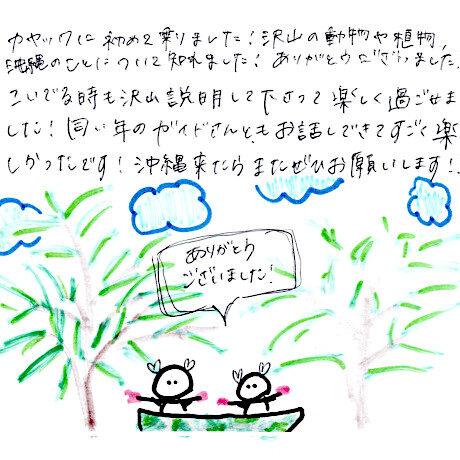 カヤックに初めて乗りました!沢山の動物や植物、
沖縄のことについて知れました!ありがとうございました。
こいでる時も沢山説明して下さって楽しく過ごせま
した!同い年のガイドさんともお話しできてすごく楽
しかったです!沖縄来たらまたぜひお願いします!
ありがとう
ございました!